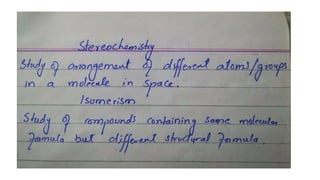 Stereochemistry
Study of arrangement of different atoms/groups
in a molecule in space.
Isomerism
Study of compounds containing same molecular
formula but different structural formula.